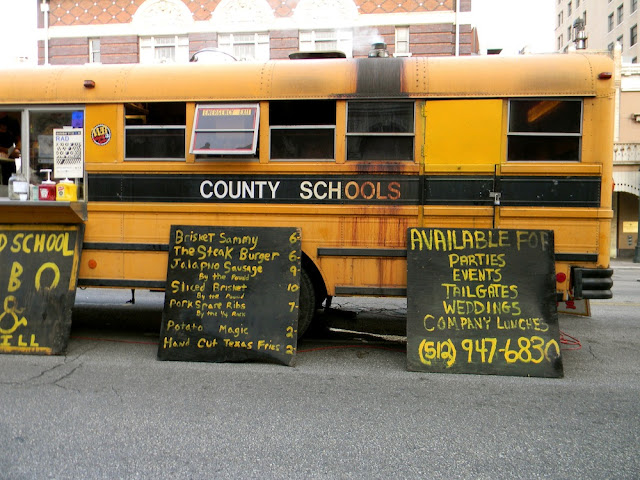 EMERGENCY EXIT
RAD
COUNTY SCHOOLS
D SCHOOL
B Q
&
ILL
Brisket Sammy 6
The Steak Burger 6
Jalapño Sausage 9
By the Pound
Sliced Brisket 10
By the Pound
Pork Spare Ribs 7
By the ½ Rack
Potato Magic 2
Hand Cut Texas Fries 2
AVAILABLE FOR
PARTIES
EVENTS
TAILGATES
WEDDINGS
COMPANY LUNCHES
(512) 947-6830